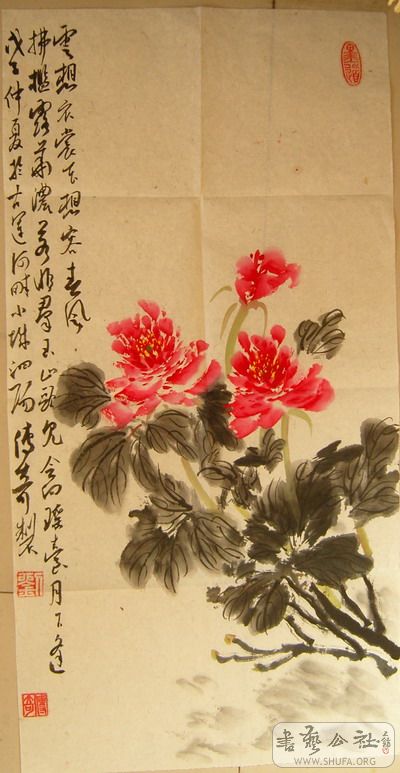 雲想衣裳花想容春風
拂檻露華濃若非羣玉山頭見会向瑤臺月下逢
戊子仲夏於古運河畔小城泗陽 奇製
書藝公社
WWW.SHUFA.ORG